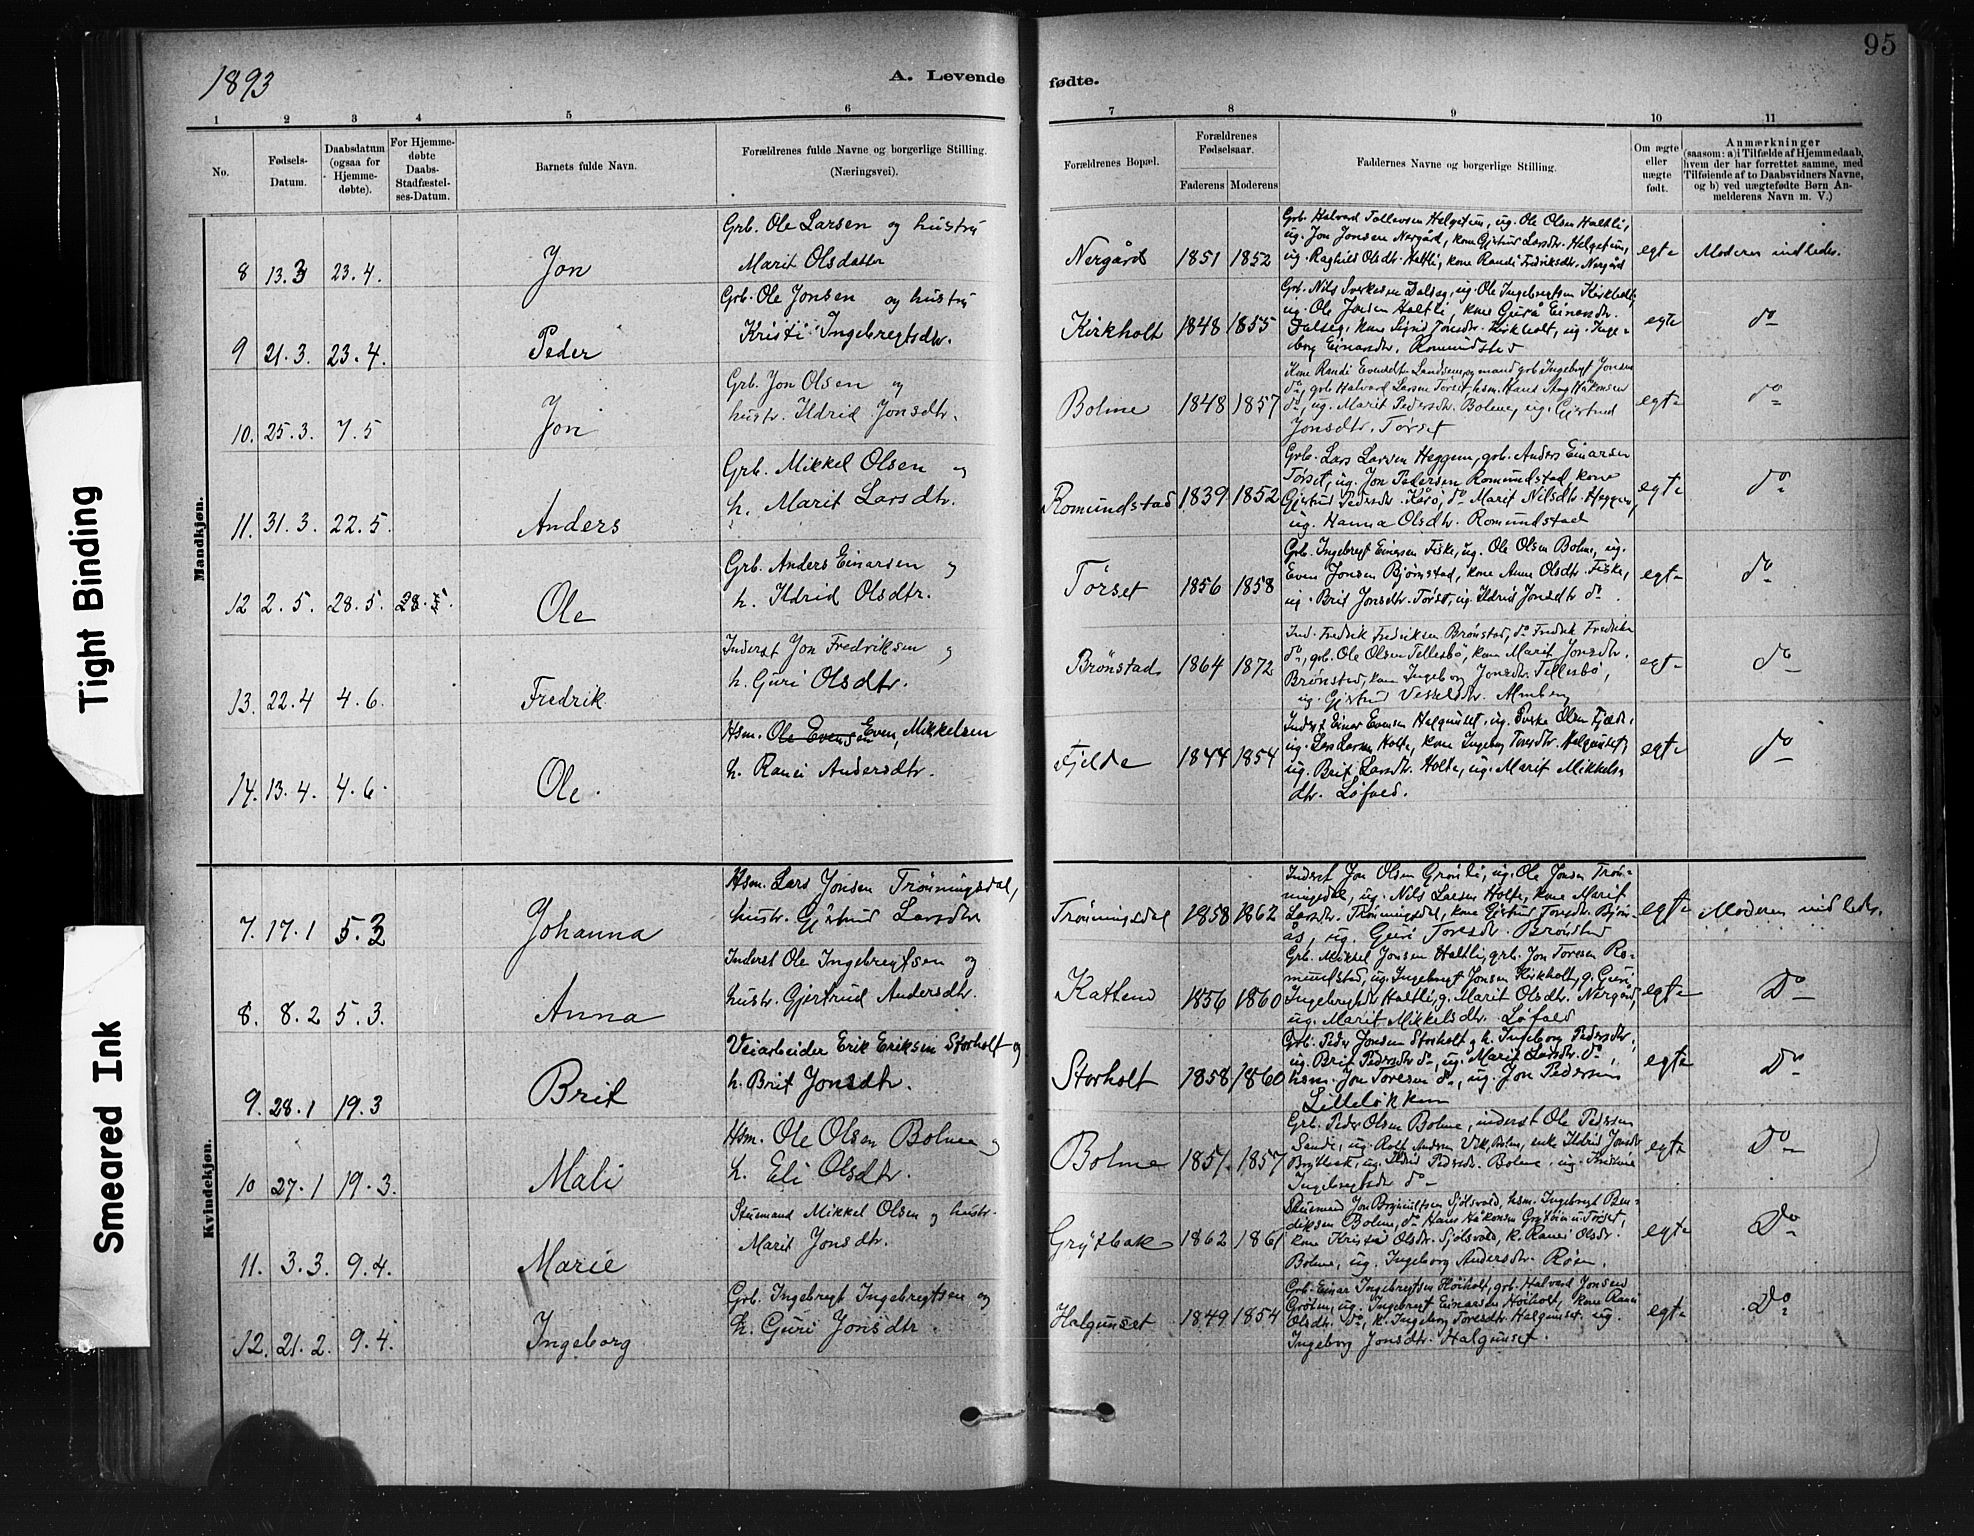 95
1893
A. Levende fødte.
1 2 3 4 5 6 7 8 9 10 11
No.
Fødsels-Datum.
Daabsdatum (ogsaa for Hjemme-døbte).
For Hjemme-døbte Daabs-Stadfæstel-ses-Datum.
Barnets fulde Navn.
Forældrenes fulde Navne og borgerlige Stilling. (Næringsvei).
Forældrenes Bopæl.
Forældrenes Fødselsaar.
Faderens Moderens
Faddernes Navne og borgerlige Stilling.
Om ægte eller uægte født.
Anmærkninger
(saasom: a) i Tilfælde af Hjemmedaab,
hvem der har forrettet samme, med
Tilføiende af to Daabsvidners Navne,
og b) ved uægtefødte Børn An-
melderens Navn m. V.)
Mandkjøn.
8 13.3 23.4. Jon
Grb. Ole Larsen og hustru
Marit Olsdatter
Nergård 1851 1852
Grb. Halvard Tollevsen Helgetun, ug. Ole Olsen Haltli,
ug. Jon Jonsen Nergård, kone Gjertrud Larsdtr. Helgetun,
ug. Raghild Olsdtr. Haltli, kone Randi Fredriksdtr. Nergård
egte Moderen indledet.
9 21.3. 23.4. Peder
Grb. Ole Jonsen og hustru
Kristi Ingebregtsdtr.
Kirkholt 1848 1855
Grb. Nils Sverkesen Dalseg, ug. Ole Ingebregtsen Kirkholt,
ug. Ole Jonsen Haltli, kone Gurå Einarsdtr.
Dalseg, kone Sigrid Jonsdtr. Kirkholt, ug. Inge-
borg Einarsdtr. Romundstad
egte do
10. 25.3. 7.5 Jon
Grb. Jon Olsen og
hustr. Ildrid Jonsdtr.
Bolme 1848 1857
Kone Randi Evensdtr. Landsem og mand grb Ingebregt Jonsen
do, grb Halvard Larsen Torset hsm. Hans Aug Håkonsen
do, ug. Marit Pedersdtr. Bolme, ug. Gjertrud
Jonsdtr. Torset
egte do
11. 31.3. 22.5. Anders
Grb. Mikkel Olsen og
h. Marit Larsdtr.
Romundstad 1839 1852
Grb. Lars Larsen Heggem, grb. Anders Einarsen
Tørset, ug. Jon Pedersen Romundstad kone
Gjertrud Pedersdtr. Kårø, do Marit Nilsdtr. Heggem,
ug. Hanna Olsdtr. Romundstad
egte do
12 2.5. 28.5. 28.5. Ole
Grb. Anders Einarsen og
h. Ildrid Olsdtr.
Tørset 1856 1858
Grb. Ingebregt Einarsen Fiske, ug. Ole Olsen Bolme, ug.
Even Jonsen Bjørnstad, kone Anne Olsdtr. Fiske,
ug. Brit Jonsdtr. Tørset, ug. Ildrid Jonsdtr do.
egte do
13. 22.4 4.6. Fredrik
Inderst Jon Fredriksen og
h. Guri Olsdtr.
Brønstad 1864 1872
Ind. Fredrik Fredriksen Brønstad, do Fredrik Fredriksen
do, grb. Ole Olsen Tellesbø, kone Marit Jonsdtr.
Brønstad, kone Ingeborg Jonsdtr. Tellesbø,
ug. Gjertrud Vesselsdtr. Almberg
egte do
14. 13.4. 4.6. Ole.
Hsm. Ole Evensen Even Mikkelsen
h. Ranei Andersdtr.
Fjelde 1844 1854
Inderst Einar Evensen Halgunset, ug. Sverke Olsen Fjelde,
ug. Lars Larsen Holte, kone Ingebor Toresdtr. Halgunset,
ug. Brit Larsdtr. Holte, ug. Marit Mikkels-
dtr. Løfald.
egte do
Kvindekjøn.
7. 17.1 5.3 Johanna
Hsm. Lars Jonsen Trønningsdal,
hustr. Gjertrud Larsdtr
Trønningsdal 1858 1862
Inderst Jon Olsen Grønli, ug. Ole Jonsen Trøn-
ningsdal, ug. Nils Larsen Holte, kone Marit
Larsdtr. Trønningsdal, kone Gjertrud Toresdtr. Bjørn-
ås, ug. Guri Toresdtr. Brønstad
egte Moderen indledet.
8. 8.2 5.3. Anna
Inderst Ole Ingebregtsen og
hustr. Gjertrud Andersdtr.
Kattem 1856 1860
Grb. Mikkel Jonsen Haltli, grb. Jon Toresen Ro-
mundstad, ug. Ingebregt Jonsen Kirkholt, g. Guri
Ingebregtsdtr Haltli, g. Marit Olsdtr. Nergård,
ug. Marit Mikkelsdtr. Løfald
egte Do
9. 28.1 19.3 Brit
Veiarbeider Erik Eriksen Storholt og
h. Brit Jonsdtr.
Storholt 1858 1860
Grb. Peder Jonsen Storholt og h. Ingeborg Pedersdtr,
ug. Brit Pedersdtr do, ug. Marit Larsdtr. do,
hsm. Jon Toresen do, ug. Jon Pedersen
Lilleløkken
egte Do
10 27.1 19.3. Mali
Hsm. Ole Olsen Bolme og
h. Eli Olsdtr.
Bolme 1851. 1857
Grb. Peder Olsen Bolme, inderst Ole Pedersen
Sande, ug. Rolf Andersen Vik, Bolm, enke Ildrid Jonsdtr
ug. Ildrid Pedersdtr. Bolme, ug.
Ingebregtsdtr do
egte Do
11. 3.3. 9.4. Marie
Stuemand Mikkel Olsen og hustr.
Marit Jonsdtr.
Grytbak 1862 1861
Stuemand Jon Brynildsen Sjølsvold, hsm. Ingebregt Ben-
diksen Bolme, do Hans Håkonsen Tørset,
kone Kristi Olsdtr. Sjølsvold, k. Ranei Olsdtr.
Bolme, ug. Ingeborg Andersdtr. Røen.
egte Do
12. 21.2. 9.4. Ingeborg
Grb. Ingebregt Ingebregtsen og
h. Guri Jonsdtr.
Halgunset 1849 1854
Grb. Einar Ingebregtsen Høiholt, grb. Halvard Jonsen
ug. Ingebregt Einarsen Høiholt, kone Ranei
Olsdtr. do, k. Ingeborg Toresdtr. Halgunset, ug.
Ingeborg Jonsdtr. Halgunset.
egte Do
Tight Binding
Smeared Ink